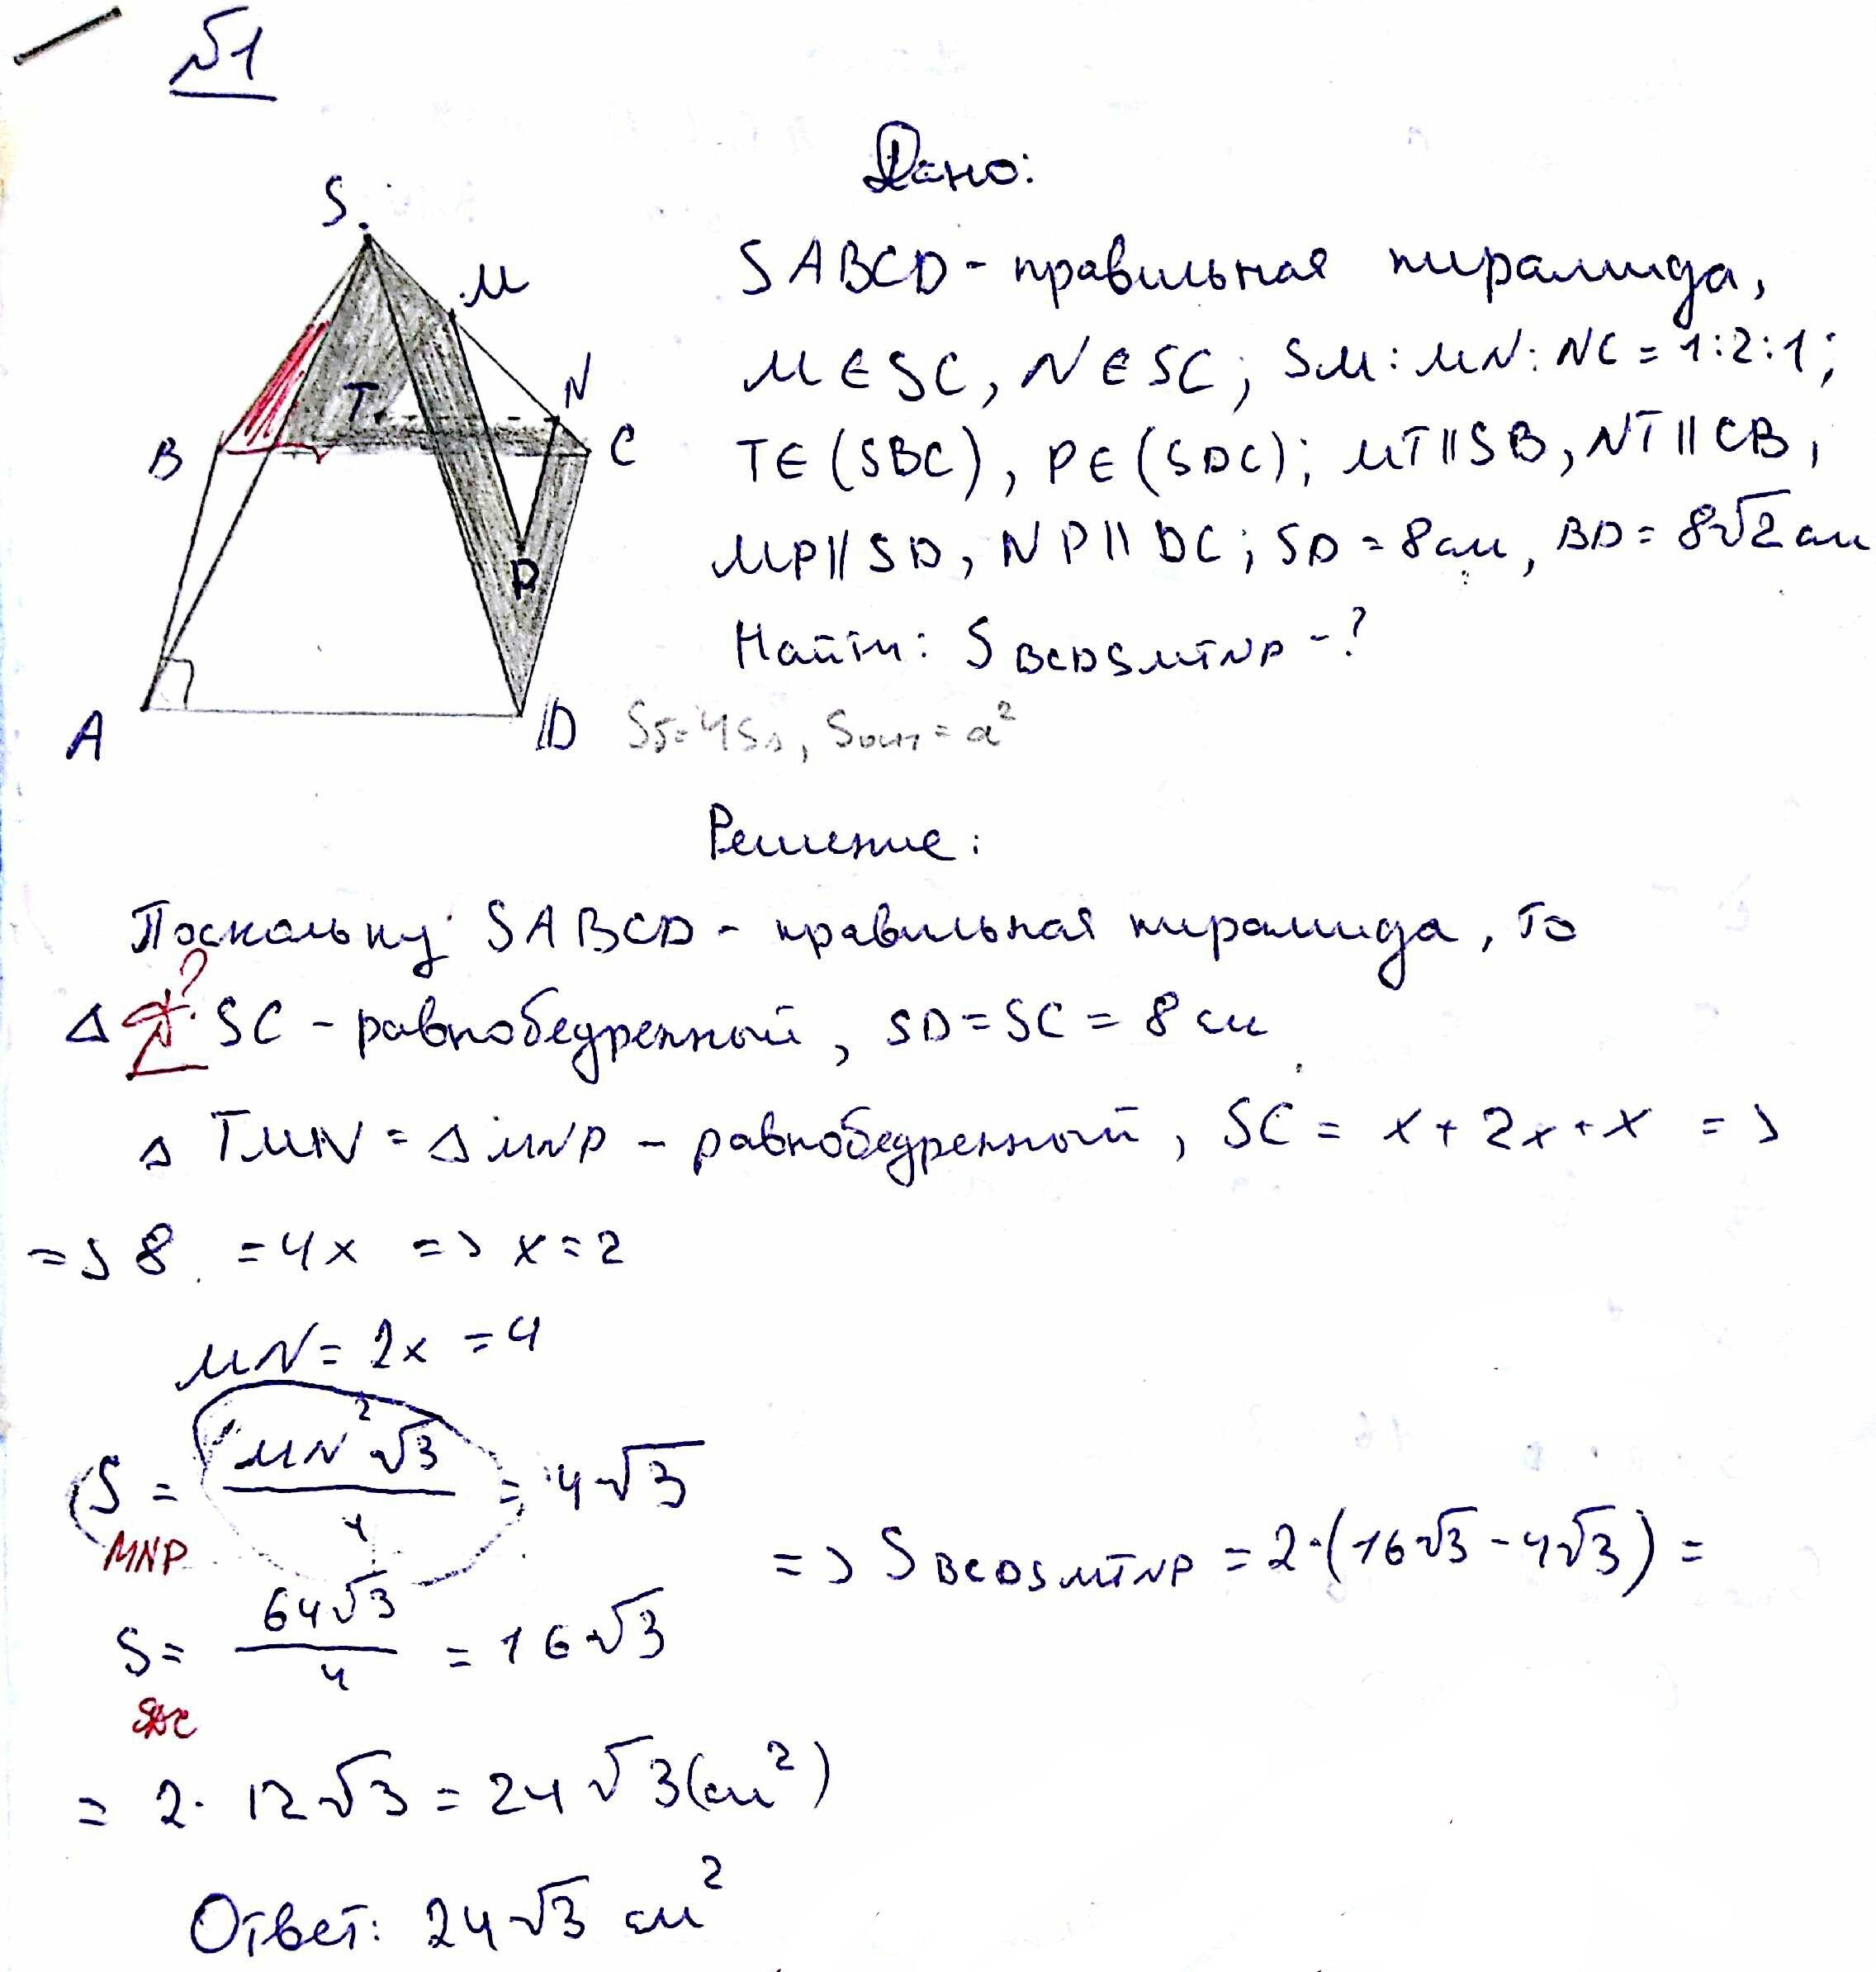 №1
Дано:
S
M
N
T
B
C
P
A
D
SABCD - правильная пирамида,
M∈SC, N∈SC; SM:MN:NC=1:2:1;
T∈(SBC), P∈(SDC); MT∥SB, NT∥CB,
MP∥SD, NP∥DC; SD=8см, BD=8√2см
Найти: S BCDSMTNP -?
Sб=4SΔ, Sосн=a²
Решение:
Поскольку SABCD - правильная пирамида, то
Δ SC - равнобедренный, SD=SC=8см
?
Δ TMN=Δ MNP - равнобедренный, SC = x+2x+x =>
=> 8 =4x => x=2
MN=2x=4
S MNP = MN²√3/4 = 4√3
=> S BCDSMTNP = 2·(16√3-4√3) =
S = 64√3/4 = 16√3
= 2·12√3=24√3(см²)
Ответ: 24√3 см²